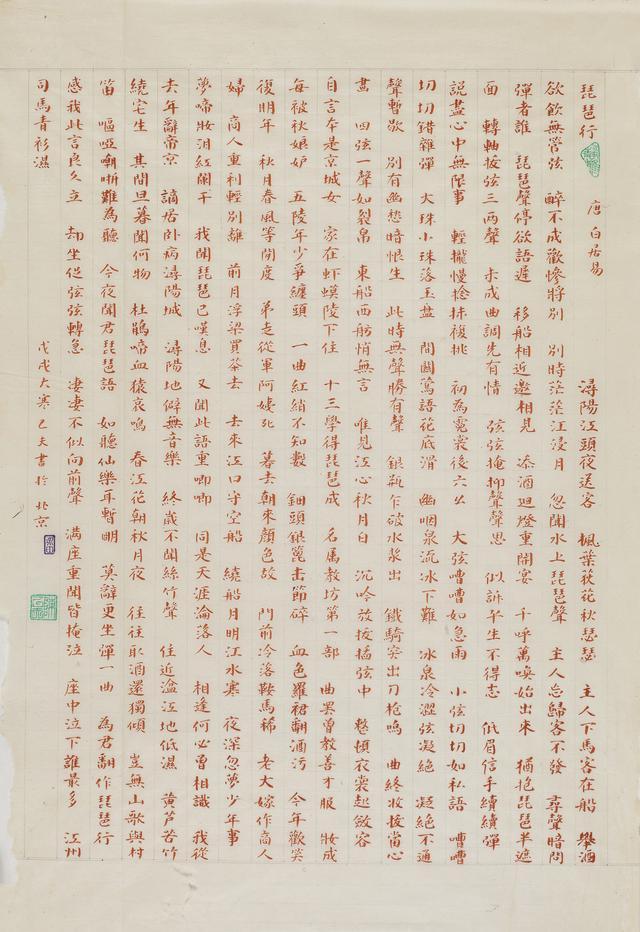 琵琶行 唐 白居易 潯陽江頭夜送客 楓葉荻花秋瑟瑟 主人下馬客在船 舉酒
欲飲無管弦 醉不成歡慘將別 別時茫茫江浸月 忽聞水上琵琶聲 主人忘歸客不發 尋聲暗問
彈者誰 琵琶聲停欲語遲 移船相近邀相見 添酒迴燈重開宴 千呼萬喚始出來 猶抱琵琶半遮
面 轉軸撥弦三兩聲 未成曲調先有情 弦弦掩抑聲聲思 似訴平生不得志 低眉信手續續彈
說盡心中無限事 輕攏慢捻抹復挑 初為霓裳後六幺 大弦嘈嘈如急雨 小弦切切如私語 嘈嘈
切切錯雜彈 大珠小珠落玉盤 間關鶯語花底滑 幽咽泉流冰下難 冰泉冷澀弦凝絕 凝絕不通
聲暫歇 別有幽愁暗恨生 此時無聲勝有聲 銀瓶乍破水漿出 鐵騎突出刀槍鳴 曲終收撥當心
畫 四弦一聲如裂帛 東船西舫悄無言 唯見江心秋月白 沉吟放撥插弦中 整頓衣裳起斂容
自言本是京城女 家在蝦蟆陵下住 十三學得琵琶成 名屬教坊第一部 曲罷曾教善才服 妝成
每被秋娘妒 五陵年少爭纏頭 一曲紅綃不知數 鈿頭銀篦击節碎 血色羅裙翻酒污 今年歡笑
復明年 秋月春風等閒度 弟走從軍阿姨死 暮去朝來顏色故 門前冷落鞍馬稀 老大嫁作商人
婦 商人重利輕別離 前月浮梁買茶去 去來江口守空船 繞船月明江水寒 夜深忽夢少年事
夢啼妝淚紅闌干 我聞琵琶已嘆息 又聞此語重唧唧 同是天涯淪落人 相逢何必曾相識 我從
去年辭帝京 謫居卧病潯陽城 潯陽地僻無音樂 終歲不聞絲竹聲 住近湓江地低濕 黃芦苦竹
繞宅生 其間旦暮聞何物 杜鵑啼血猿哀鳴 春江花朝秋月夜 往往取酒還獨傾 豈無山歌與村
笛 嘔啞嘲哳難為聽 今夜聞君琵琶語 如聽仙樂耳暫明 莫辭更坐彈一曲 為君翻作琵琶行
感我此言良久立 却坐促弦弦轉急 淒淒不似向前聲 滿座重聞皆掩泣 座中泣下誰最多 江州
司馬青衫濕
戊戌大寒 己夫書於北京